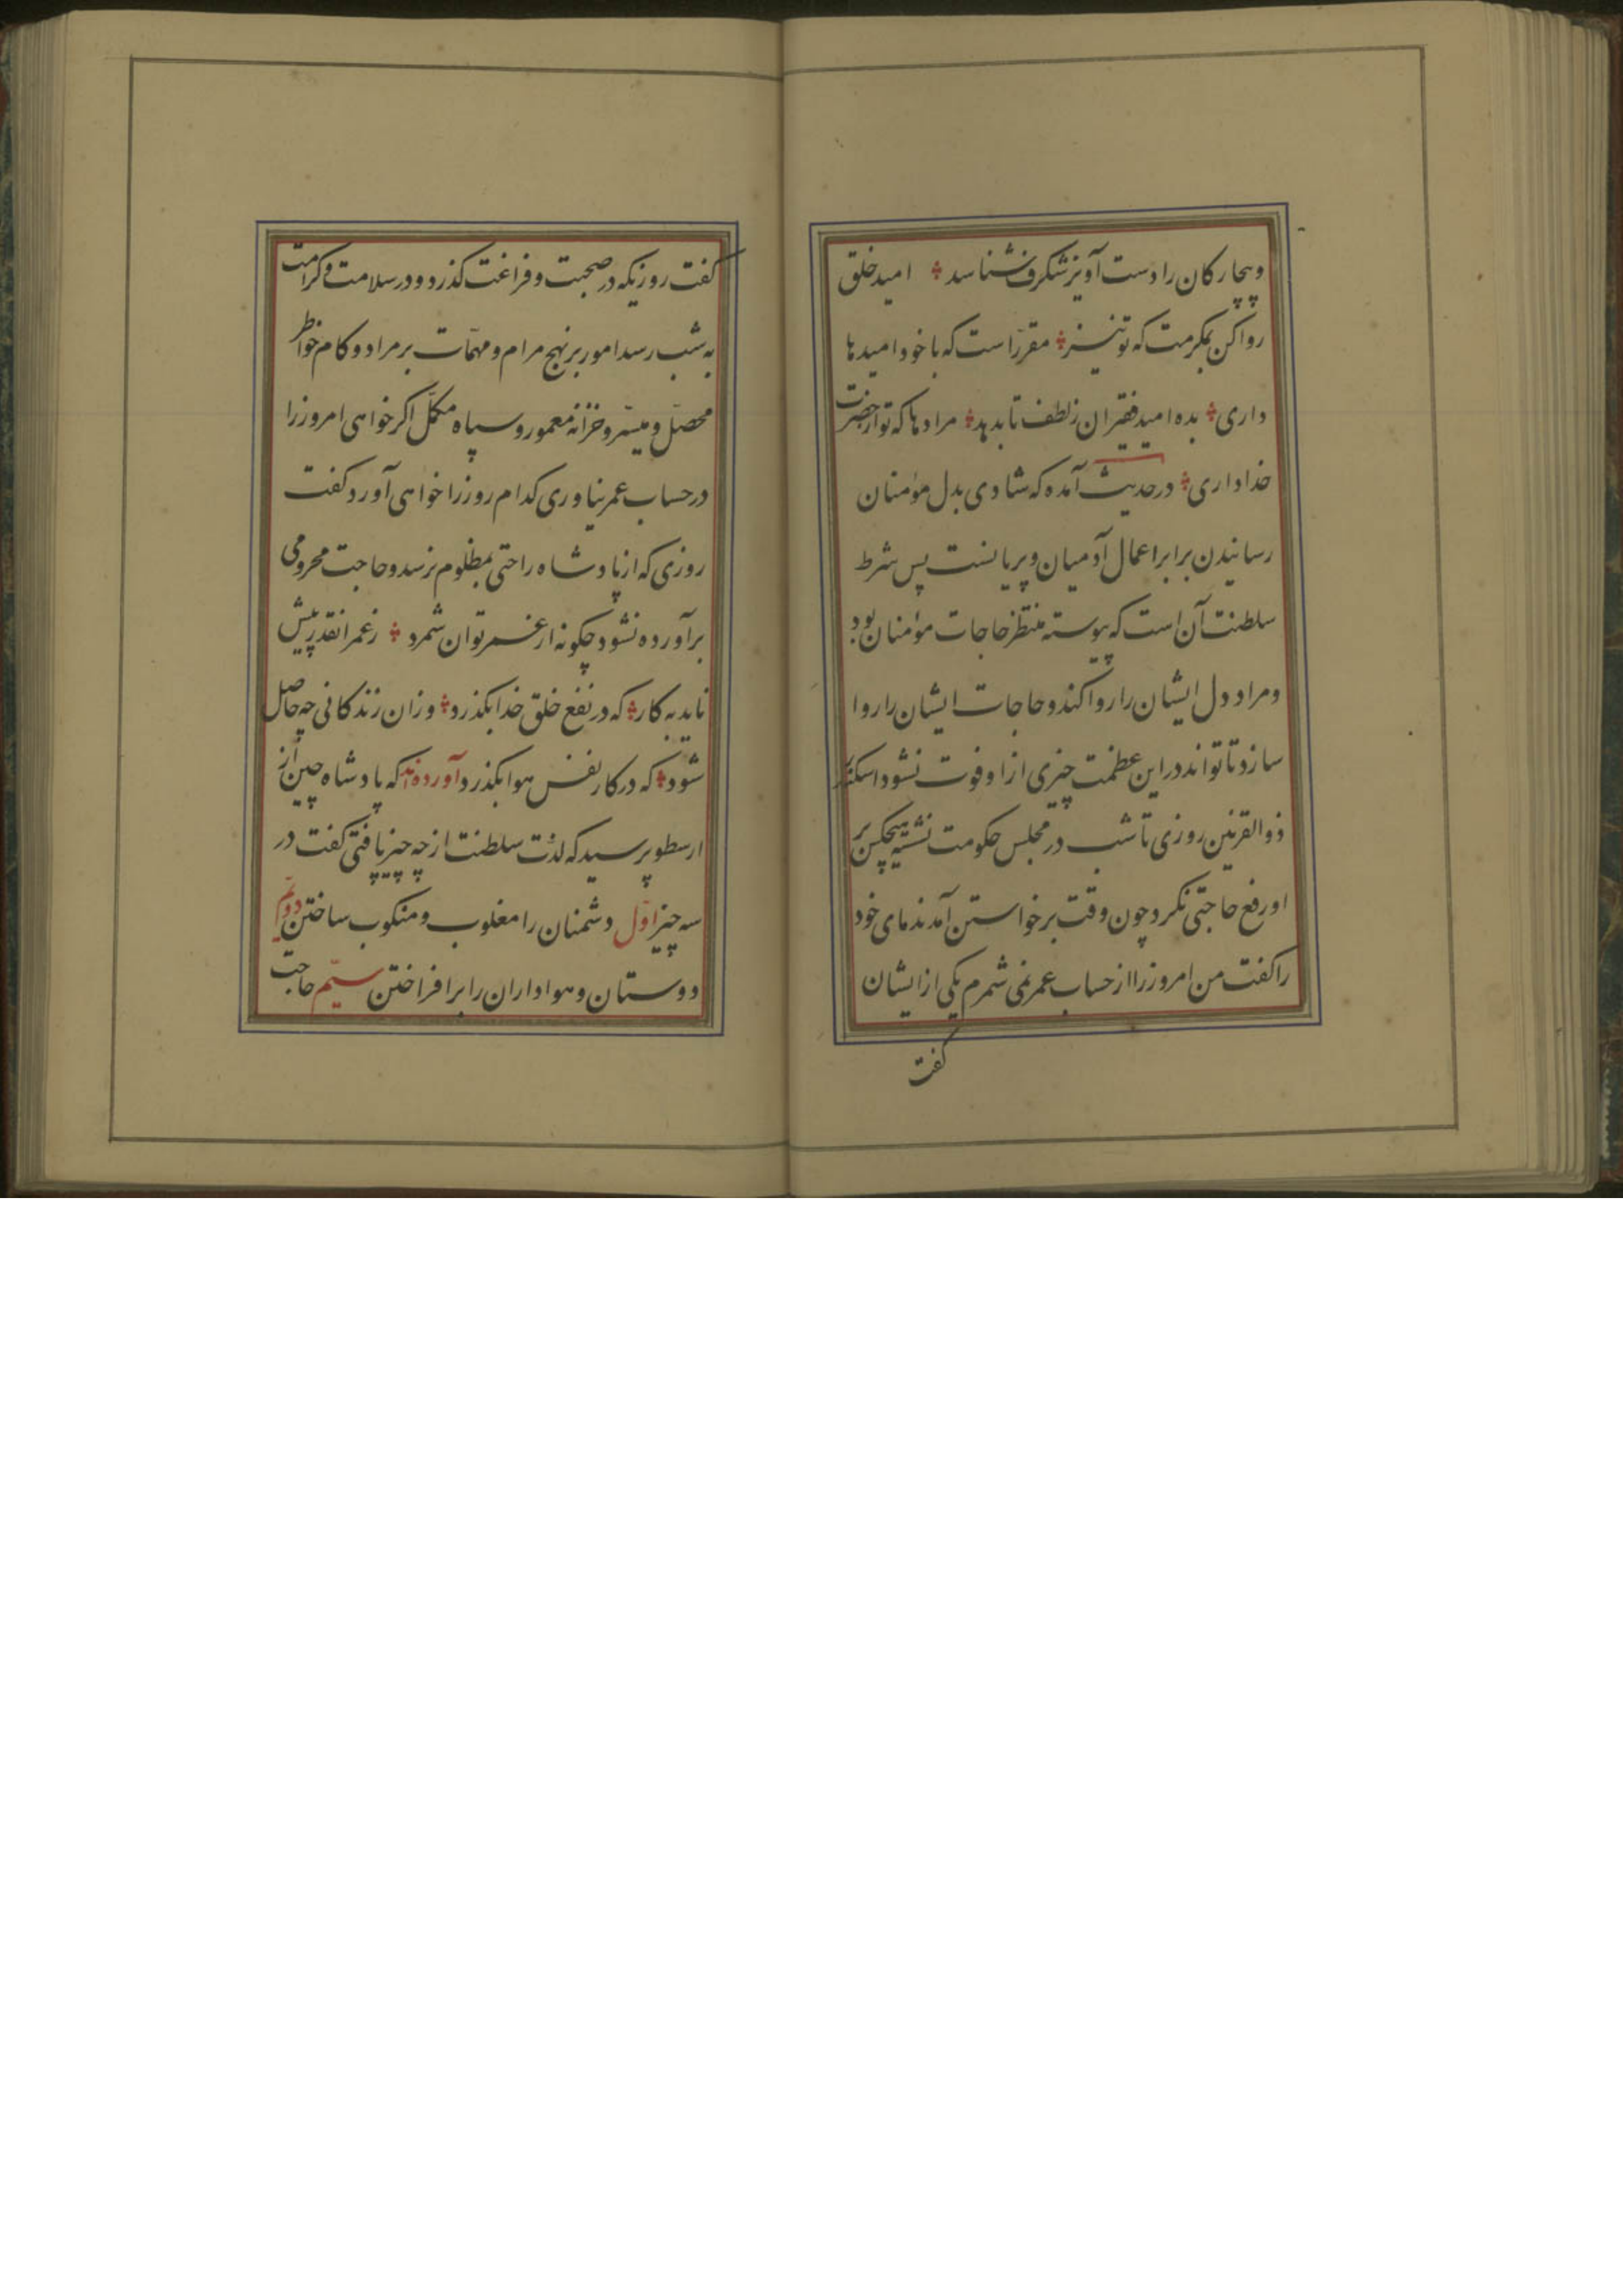 وبیچارکان را دست آویز شکرف شناسد امید خلق
روا کن بمکرمت که تو نیز مقرر است که با خود امیدها
داری بده امید فقیران ز لطف تا بدهد مرادها که تو از حضرت
خدا داری در حدیث آمده که شادی بدل مؤمنان
رسانیدن برابر اعمال آدمیان و پریانست پس شرط
سلطنت آن است که پیوسته منتظر حاجات مؤمنان بود
و مراد دل ایشان را روا کند و حاجات ایشان را روا
سازد تا تواند در این عظمت چیزی ازاو فوت نشود اسکندر
ذوالقرنین روزی تا شب در مجلس حکومت نشسته هیچکس بر
او رفع حاجتی نکرد چون وقت برخواستن آمد ندمای خود
را کفت من امروز را از حساب عمر نمی شمرم یکی از ایشان
کفت
کفت روزیکه در صحبت و فراغت کذرد و در سلامت و کرامت
به شب رسد امور بر نهج مرام و مهمّات بر مراد و کام خواطر
محصّل و میسّر و خزانه معمور و سپاه مکمّل اکر خواهی امروز را
در حساب عمر نیاوری کدام روز را خواهی آورد کفت
روزی که از پادشاه راحتی بمظلوم نرسد و حاجت محرومی
برآورده نشود چکونه از عمر توان شمرد ز عمر انقدر پیش
ناید به کار که در نفع خلق خدا بکذرد وزان زندکانی چه حاصل
شود که در کار نفس هوا بکذرد آورده‌اند که پادشاه چین از
ارسطو پرسید که لذّت سلطنت از چه چیز یافتی کفت در
سه چیز اوّل دشمنان را مغلوب و منکوب ساختن دوّم
دوستان و هواداران را برافراختن سیّم حاجت